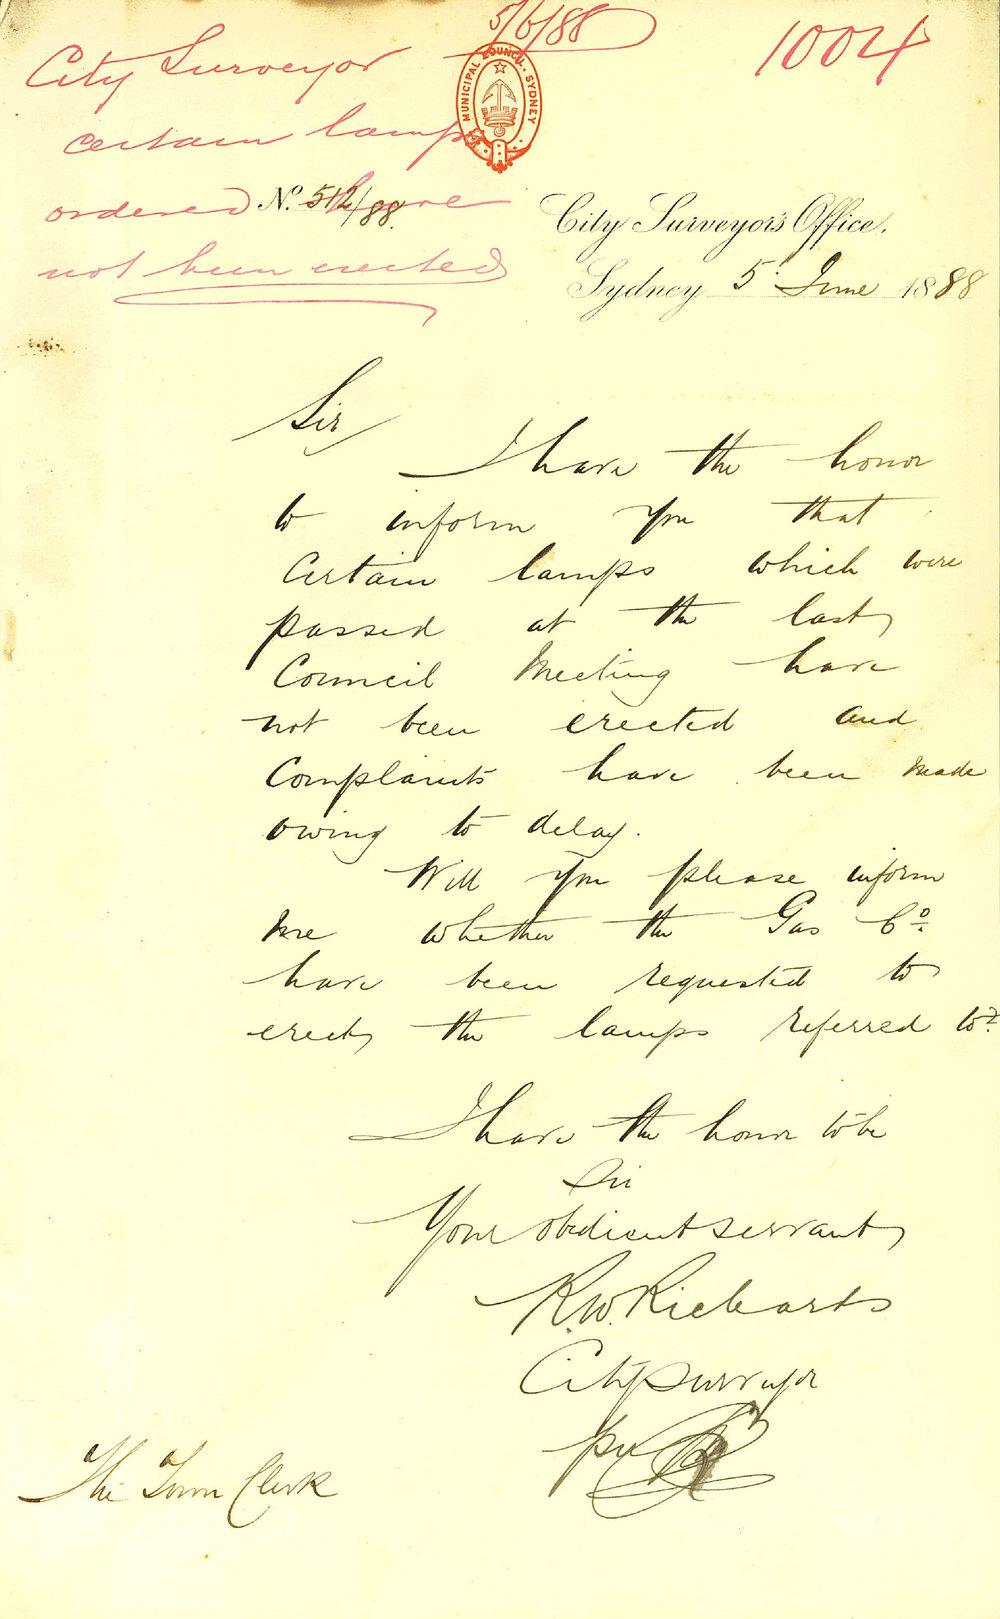 5/6/88
1004
City Surveyor
certain lamps
ordered have
not been erected
MUNICIPAL COUNCIL. SYDNEY
No. 512/88.
City Surveyor's Office.
Sydney 5 June 1888
Sir
I have the honor
to inform you that
Certain lamps which were
passed at the last
Council Meeting have
not been erected and
Complaints have been made
owing to delay.
Will you please inform
me whether the Gas Co.
have been requested to
erect the lamps referred to?
I have the honor to be
Sir
Your obedient servant
R.W. Richards
City Surveyor
per
The Town Clerk